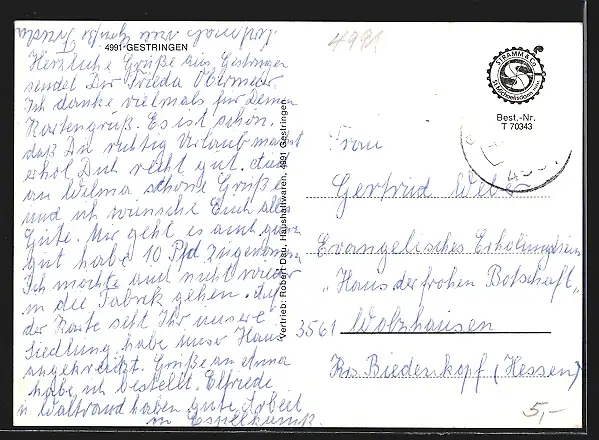 nochmals viele Grüße Frieda
4991 GESTRINGEN
4991
Herzliche Grüße aus Gestringen
sendet Dir Frieda Obermeier.
Ich danke vielmals für Deinen
Kartengruß. Es ist schön.
daß Du richtig Urlaub machst
erhol Dich recht gut. Auch
an Wilma schöne Grüße
und ich wünsche Euch alles
Gute. Mir geht es auch ganz
gut habe 10 Pfd zugenommen
Ich möchte auch nicht wieder
in die Fabrik gehen. Auf
der Karte seht Ihr unsere
Siedlung, habe unser Haus
angekreuzt. Grüße an Anna
habe ich bestellt. Elfriede
u Waltraud haben gute Arbeit
in Espelkamp.
Vertrieb: Robert Dau, Haushaltwaren, 4991 Gestringen
STRAMM & Co.
St. Michaelisdonn
Best.-Nr.
T 70343
Frau
Gertrud Weber
Evangelisches Erholungsheim
"Haus der frohen Botschaft"
3561 Wolzhausen
Krs. Biedenkopf (Hessen)
5,-